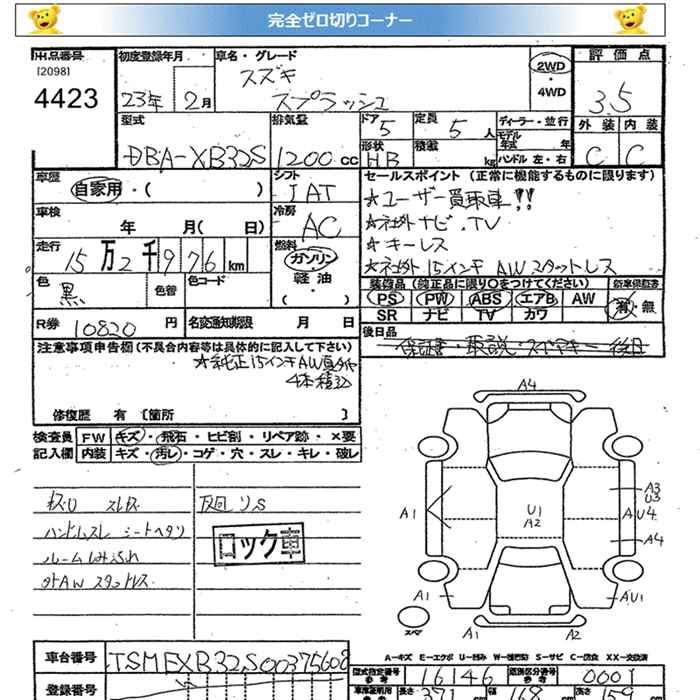 完全ゼロ切りコーナー
出品番号 初度登録年月 車名・グレード 評価点
[2098] スズキ 2WD
4423 23年 2月 スプラッシュ 4WD 3.5
型式 排気量 ドア 5 定員 5人 ディーラー・並行 外装 内装
モデル年式 年
DBA-XB32S 1200cc 形状 HB 積載 kg ハンドル 左・右 C C
車歴 シフト セールスポイント(正常に機能するものに限ります)
自家用・( ) IAT ★ユーザー買取車!!
車検 冷房 ★社外ナビ.TV
年 月( 日) AC ★キーレス
走行 燃料 ★社外15インチ AWスタットレス
15万2千976km ガソリン・軽油
色 黒 色替 色コード ・( ) 装備品(純正品に限り○をつけてください) 新車保証書
PS PW ABS エアB AW 有・無
SR ナビ TV カワ
R券 10820円 名変通知期限 月 日
後日品
注意事項申告欄(不具合内容等は具体的に記入して下さい) 保証書・取説・スペアキー 後日
★純正15インチAW夏タイヤ
4本積込
修復歴 有[箇所 ]
検査員 FW キズ・飛石・ヒビ割・リペア跡・×要
記入欄 内装 キズ・汚レ・コゲ・穴・スレ・キレ・破レ
A4
ハンドルスレ シートヘタリ
ロック車
ルームしみ汚れ
外AWスタットレス
A3
U3
A1 U1 A2 AU4
A4
A1 AU1
スペア A1 A2
A-キズ E-エクボ U-凹み W-補修跡 S-サビ C-腐食 XX-交換済
車台番号 TSMEXB32S00375608
型式指定番号 参考 16146 類別区分番号 参考 0001
登録番号
車庫証明用 参考 長さ 371 幅 168 高さ